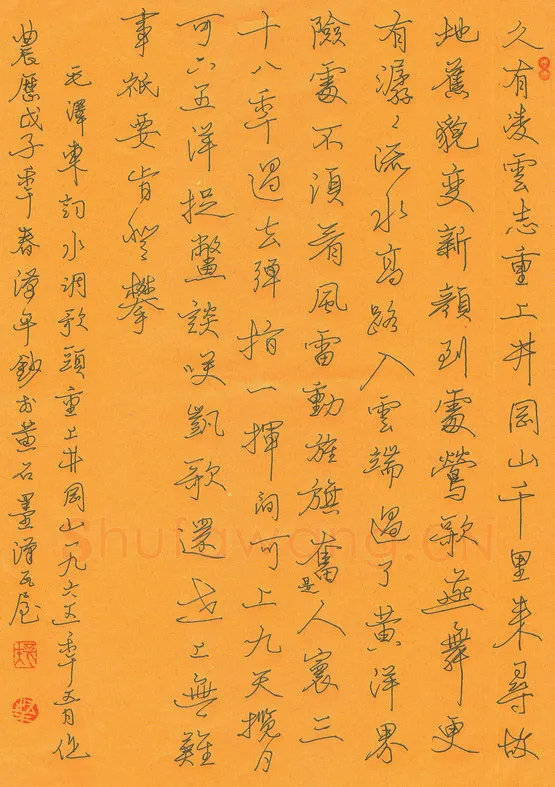 久有凌雲志重上井岡山千里来尋故
地舊貌变新顔到處鶯歌燕舞更
有潺々流水高路入雲端過了黄洋界
險處不須看風雷動旌旗奮是人寰三
十八年過去彈指一揮间可上九天攬月
可下五洋捉鱉談笑凱歌還世上無難
事祇要肯登攀
毛澤東詞水調歌頭重上井岡山一九六五年五月作
農歷戊子年春年鈔於黄石墨屋
Shufawang.CN